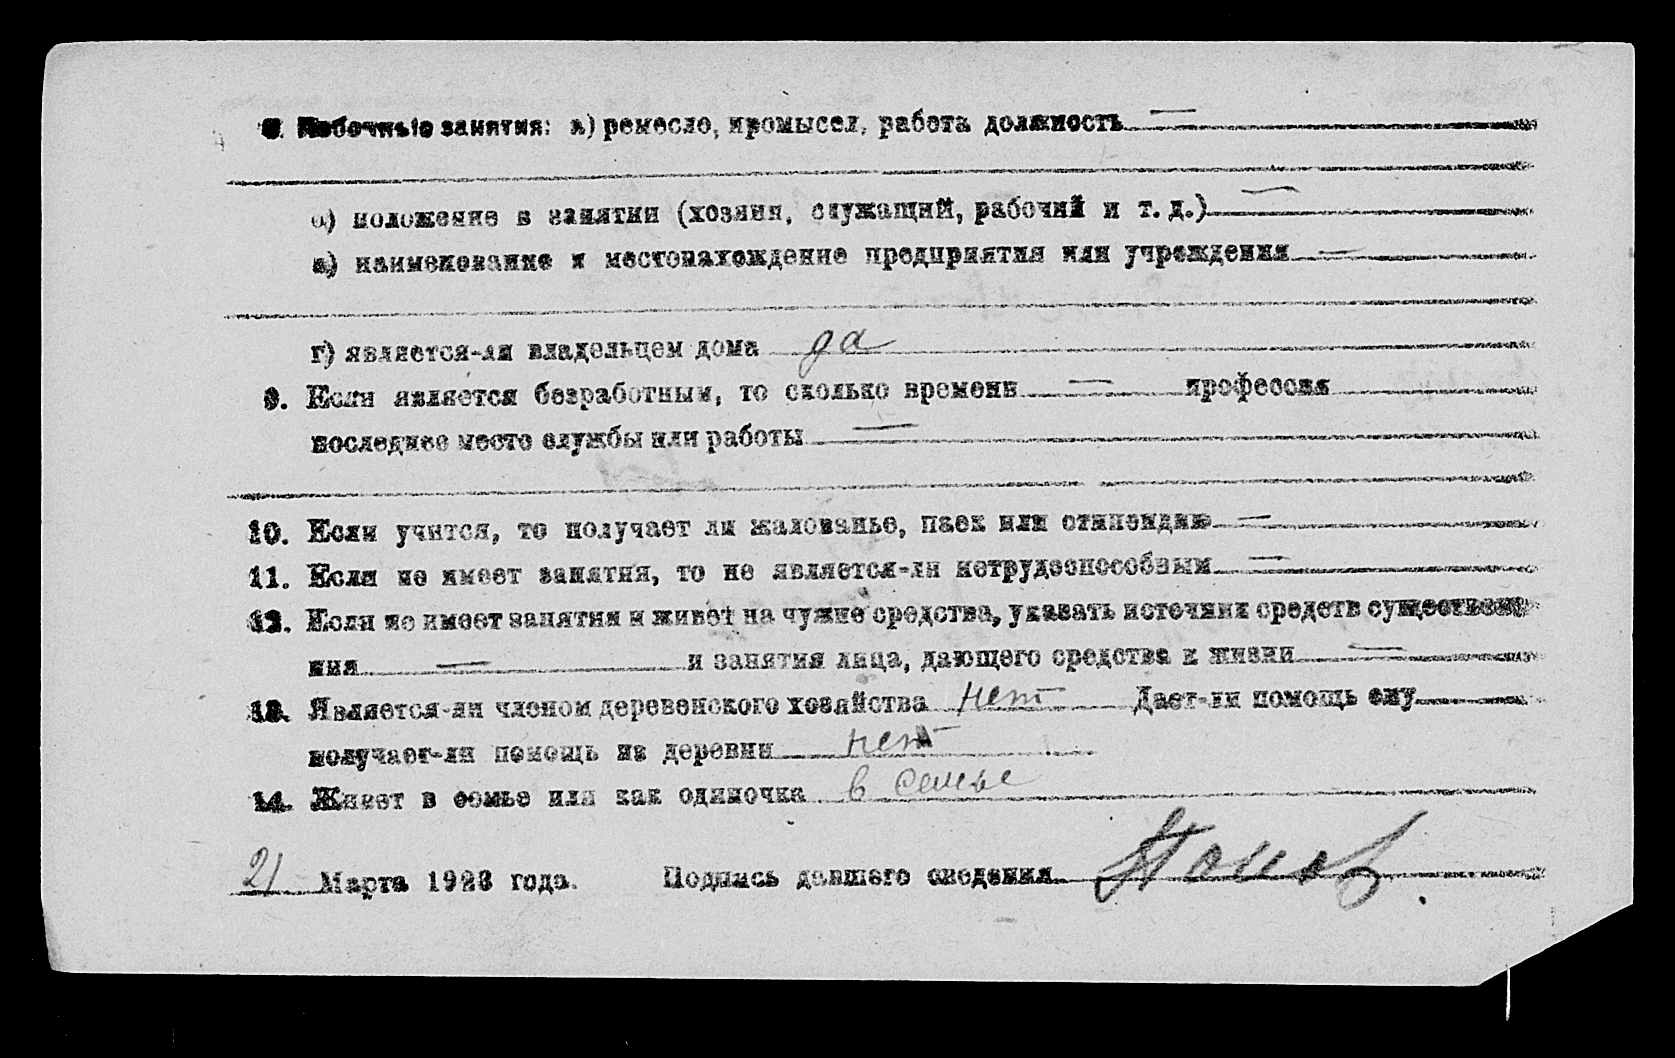 8. Побочные занятия: а) ремесло, промысел, работа должность —
б) положение в занятии (хозяин, служащий, рабочий и т. д.) —
в) наименование и местонахождение предприятия или учреждения —
г) является-ли владельцем дома да
9. Если является безработным, то сколько времени — профессия
последнее место службы или работы —
10. Если учится, то получает ли жалованье, паек или стипендию —
11. Если не имеет занятия, то не является-ли нетрудоспособным —
12. Если не имеет занятия и живет на чужие средства, указать источник средств существова-
ния — и занятия лица, дающего средства к жизни —
13. Является-ли членом деревенского хозяйства нет Дает-ли помощь ему
получает-ли помощь из деревни нет
14. Живет в семье или как одиночка в семье
21 Марта 1923 года. Подпись давшего сведения